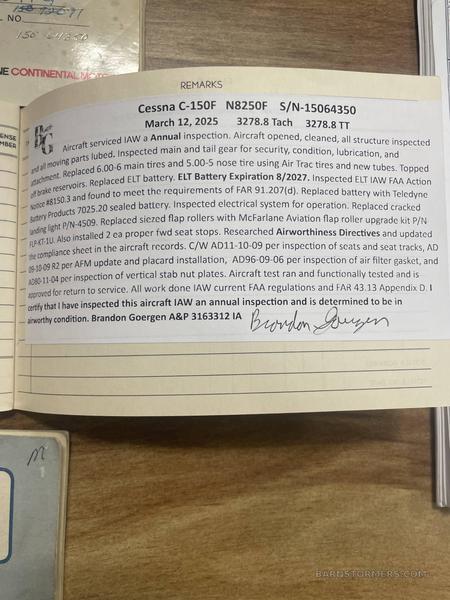 L NO.
150 64350
NE CONTINENTAL MOT
ENSE
MBER
REMARKS
Cessna C-150F N8250F S/N-15064350
March 12, 2025 3278.8 Tach 3278.8 TT
BG
Aircraft serviced IAW a Annual inspection. Aircraft opened, cleaned, all structure inspected
and all moving parts lubed. Inspected main and tail gear for security, condition, lubrication, and
attachment. Replaced 6.00-6 main tires and 5.00-5 nose tire using Air Trac tires and new tubes. Topped
off brake reservoirs. Replaced ELT battery. ELT Battery Expiration 8/2027. Inspected ELT IAW FAA Action
Notice #8150.3 and found to meet the requirements of FAR 91.207(d). Replaced battery with Teledyne
Battery Products 7025.20 sealed battery. Inspected electrical system for operation. Replaced cracked
landing light P/N-4509. Replaced siezed flap rollers with McFarlane Aviation flap roller upgrade kit P/N
FLP-KT-1U. Also installed 2 ea proper fwd seat stops. Researched Airworthiness Directives and updated
the compliance sheet in the aircraft records. C/W AD11-10-09 per inspection of seats and seat tracks, AD
09-10-09 R2 per AFM update and placard installation, AD96-09-06 per inspection of air filter gasket, and
AD80-11-04 per inspection of vertical stab nut plates. Aircraft test ran and functionally tested and is
approved for return to service. All work done IAW current FAA regulations and FAR 43.13 Appendix D. I
certify that I have inspected this aircraft IAW an annual inspection and is determined to be in
airworthy condition. Brandon Goergen A&P 3163312 IA Brandon Goergen
M
BARNSTORMERS.COM